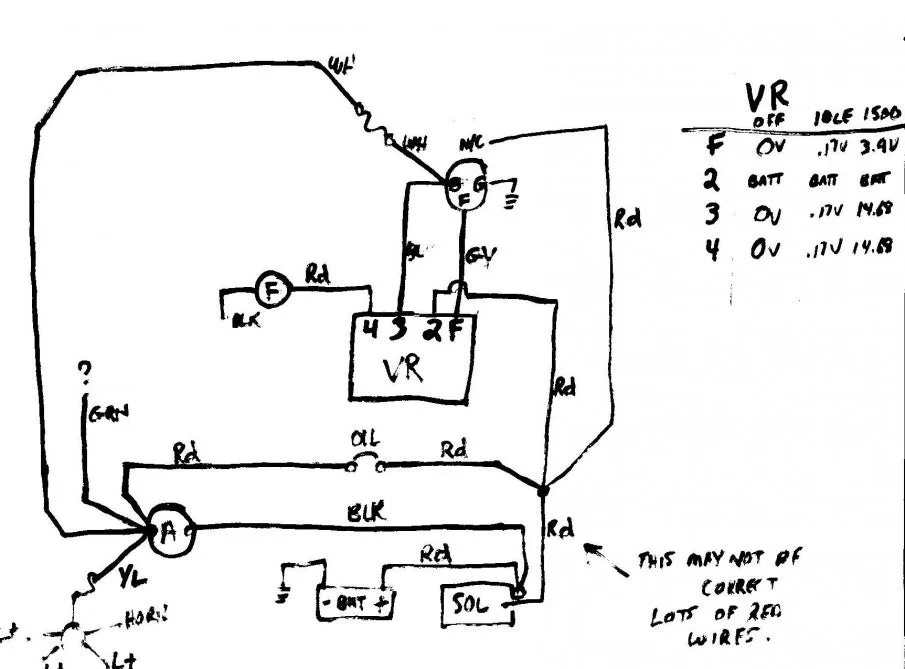 WH
WH
N/C
B G
F
Rd
BL
GY
F
Rd
BLK
4 3 2 F
VR
Rd
?
GRN
Rd
OIL
Rd
A
BLK
Rd
Rd
YL
- BAT +
SOL
HORN
L+
THIS MAY NOT BE
CORRECT
LOTS OF RED
WIRES.
VR
OFF IDLE 1500
F 0V .17V 3.9V
2 BATT BATT BAT
3 0V .17V 14.68
4 0V .17V 14.68